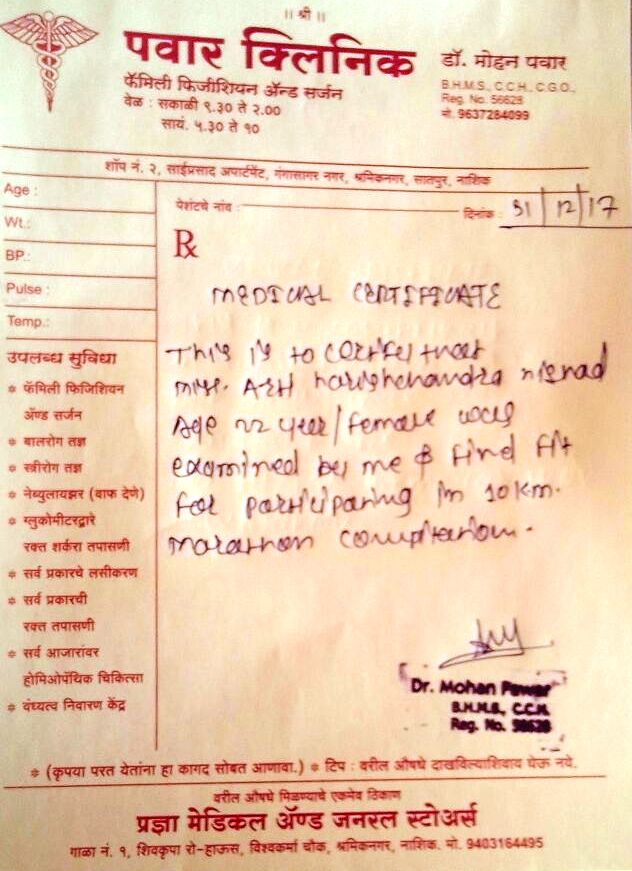 ॥ श्री ॥
पवार क्लिनिक
फॅमिली फिजीशियन ॲन्ड सर्जन
वेळ : सकाळी ९.३० ते २.००
सायं. ५.३० ते १०
डॉ. मोहन पवार
B.H.M.S., C.C.H., C.G.O.,
Reg. No. 56628
मो. 9637284099
शॉप नं. २, साईप्रसाद अपार्टमेंट, गंगासागर नगर, श्रमिकनगर, सातपुर, नाशिक
पेशंटचे नांव :
दिनांक : 31/12/17
Age :
Wt.:
BP.:
Pulse :
Temp.:
उपलब्ध सुविधा
* फॅमिली फिजिशियन
ॲण्ड सर्जन
* बालरोग तज्ञ
* स्त्रीरोग तज्ञ
* नेब्युलायझर (वाफ देणे)
* ग्लुकोमीटरद्वारे
रक्त शर्करा तपासणी
* सर्व प्रकारचे लसीकरण
* सर्व प्रकारची
रक्त तपासणी
* सर्व आजारांवर
होमिओपॅथिक चिकित्सा
* वंध्यत्व निवारण केंद्र
℞
MEDICAL CERTIFICATE
This is to certify that
harishchandra nishad
Age 22 year/female was
examined by me & find fit
for participating in 10 Km.
marathon
Dr. Mohan Pawar
B.H.M.S., C.C.H.
Reg. No. 56628
* (कृपया परत येतांना हा कागद सोबत आणावा.) * टिप : वरील औषधे दाखविल्याशिवाय घेऊ नये.
वरील औषधे मिळण्याचे एकमेव ठिकाण
प्रज्ञा मेडिकल ॲण्ड जनरल स्टोअर्स
गाळा नं. १, शिवकृपा रो-हाऊस, विश्वकर्मा चौक, श्रमिकनगर, नाशिक. मो. 9403164495